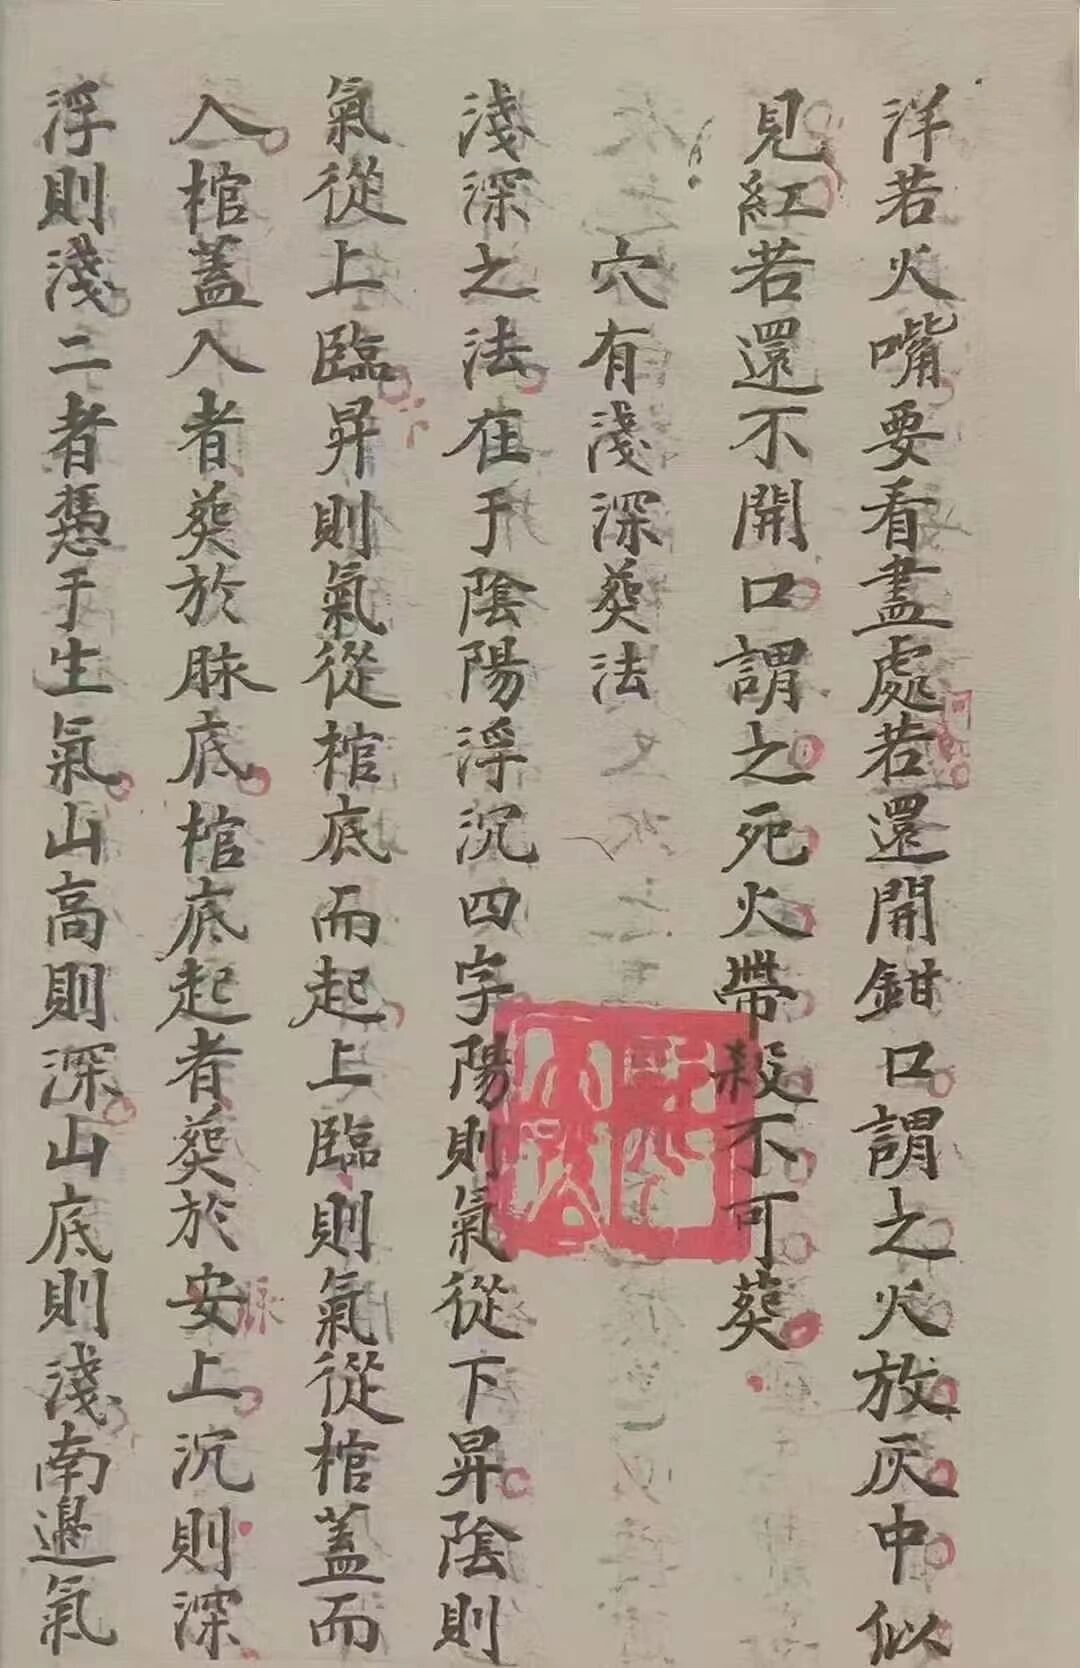 洋若火嘴要看盡處若還開鉗口謂之火放灰中似
見紅若還不開口謂之死火帶殺不可葵
穴有淺深葵法
淺深之法在于陰陽浮沉四字陽則氣從下昇陰則
氣從上臨昇則氣從棺底而起上臨則氣從棺蓋而
入棺蓋入者葵於脉底棺底起者葵於安上沉則深
脉
浮則淺二者憑于生氣山高則深山底則淺南邊氣